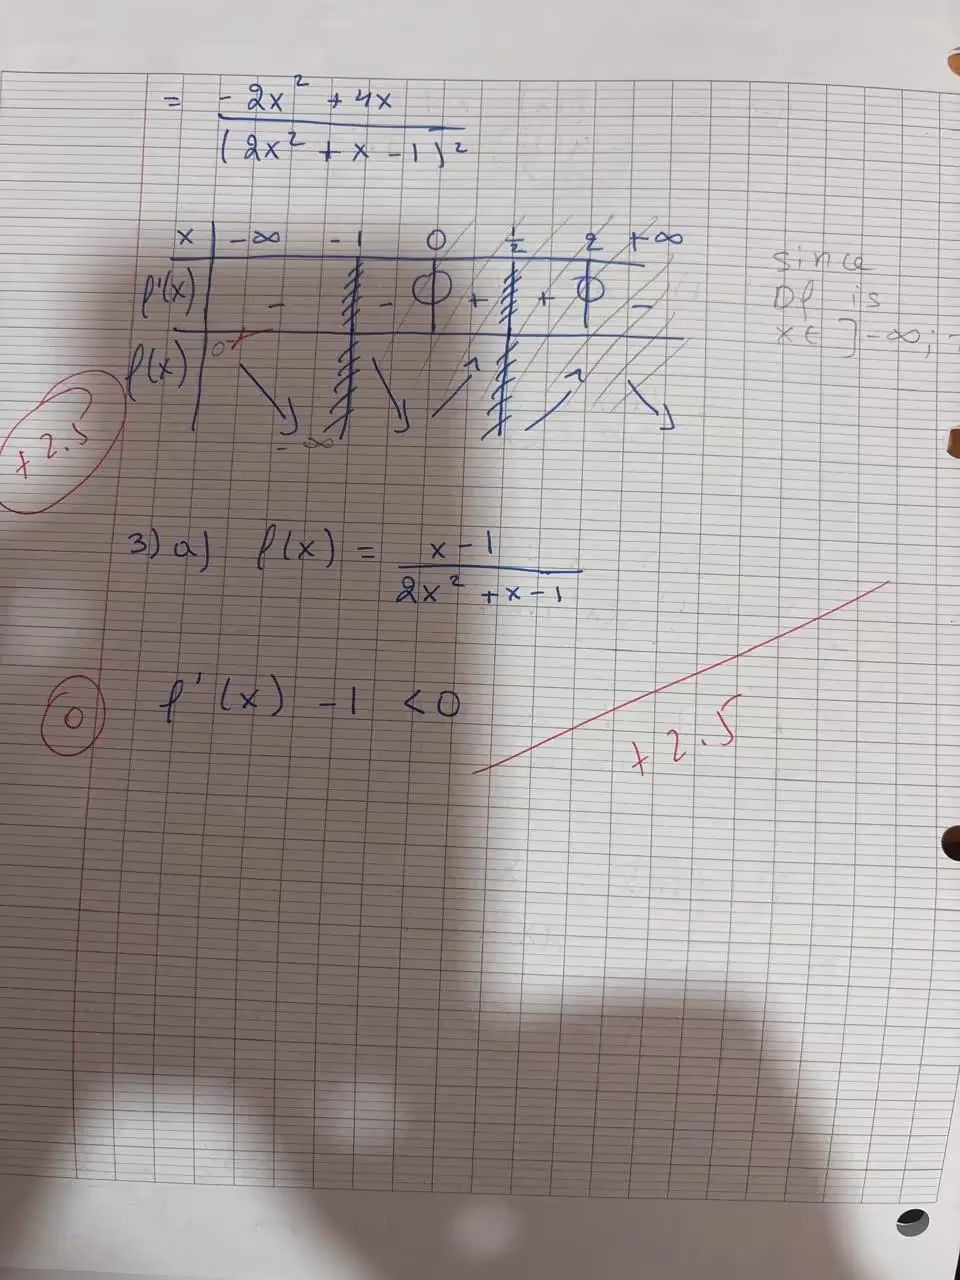 = -2x² + 4x
(2x² + x - 1)²
x -∞ -1 0 1/2 2 +∞
f'(x) - - 0 + + 0 -
since
Df is
x ∈ ]-∞;
f(x) 0 ↘ -∞ ↘ ↗ ↗ ↘
+2.5
3) a) f(x) = x - 1
2x² + x - 1
0 f'(x) - 1 < 0
+2.5